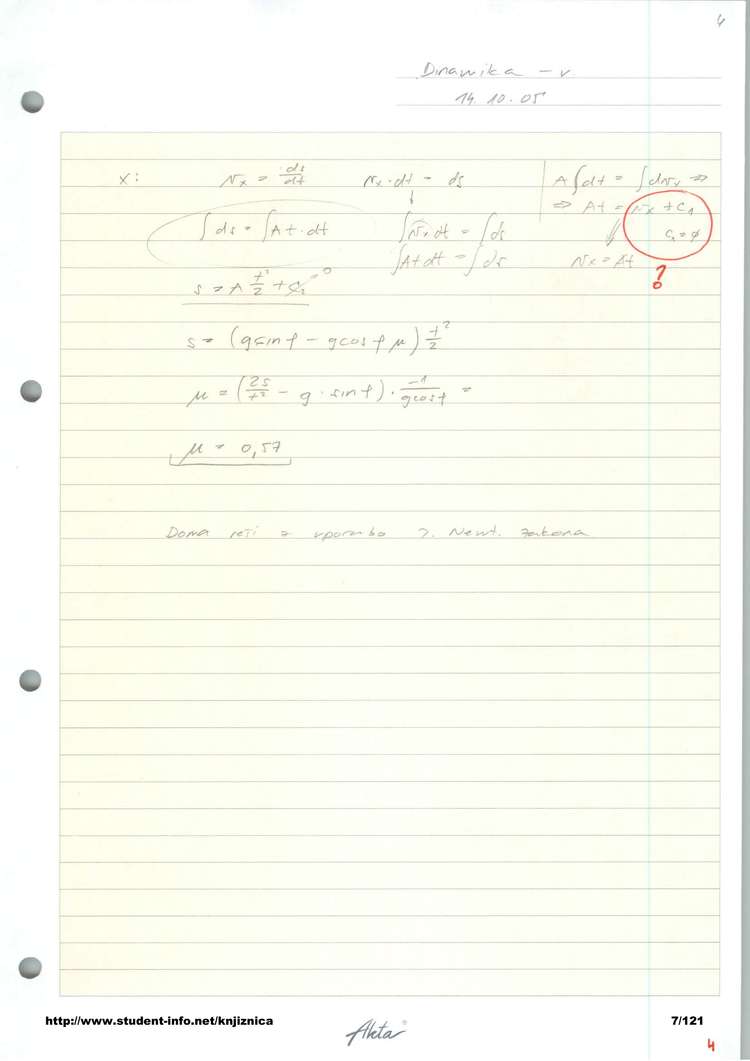 4
Dinamika - v
14. 10. 05
x: Nx = ds/dt Nx · dt = ds A∫dt = ∫dNx ⇒
⇒ At = Nx + C1
∫ds = ∫At · dt ∫Nx dt = ∫ds C1 = ϕ
∫At dt = ∫ds Nx = At
?
s = A t²/2 + C2 = 0
s = (g sin φ - g cos φ μ) t²/2
μ = (2s/t² - g · sin φ) · -1/(g cos φ) =
μ = 0,57
Doma reši z uporabo 2. Newt. zakona
http://www.student-info.net/knjiznica
Aleta
7/121
4